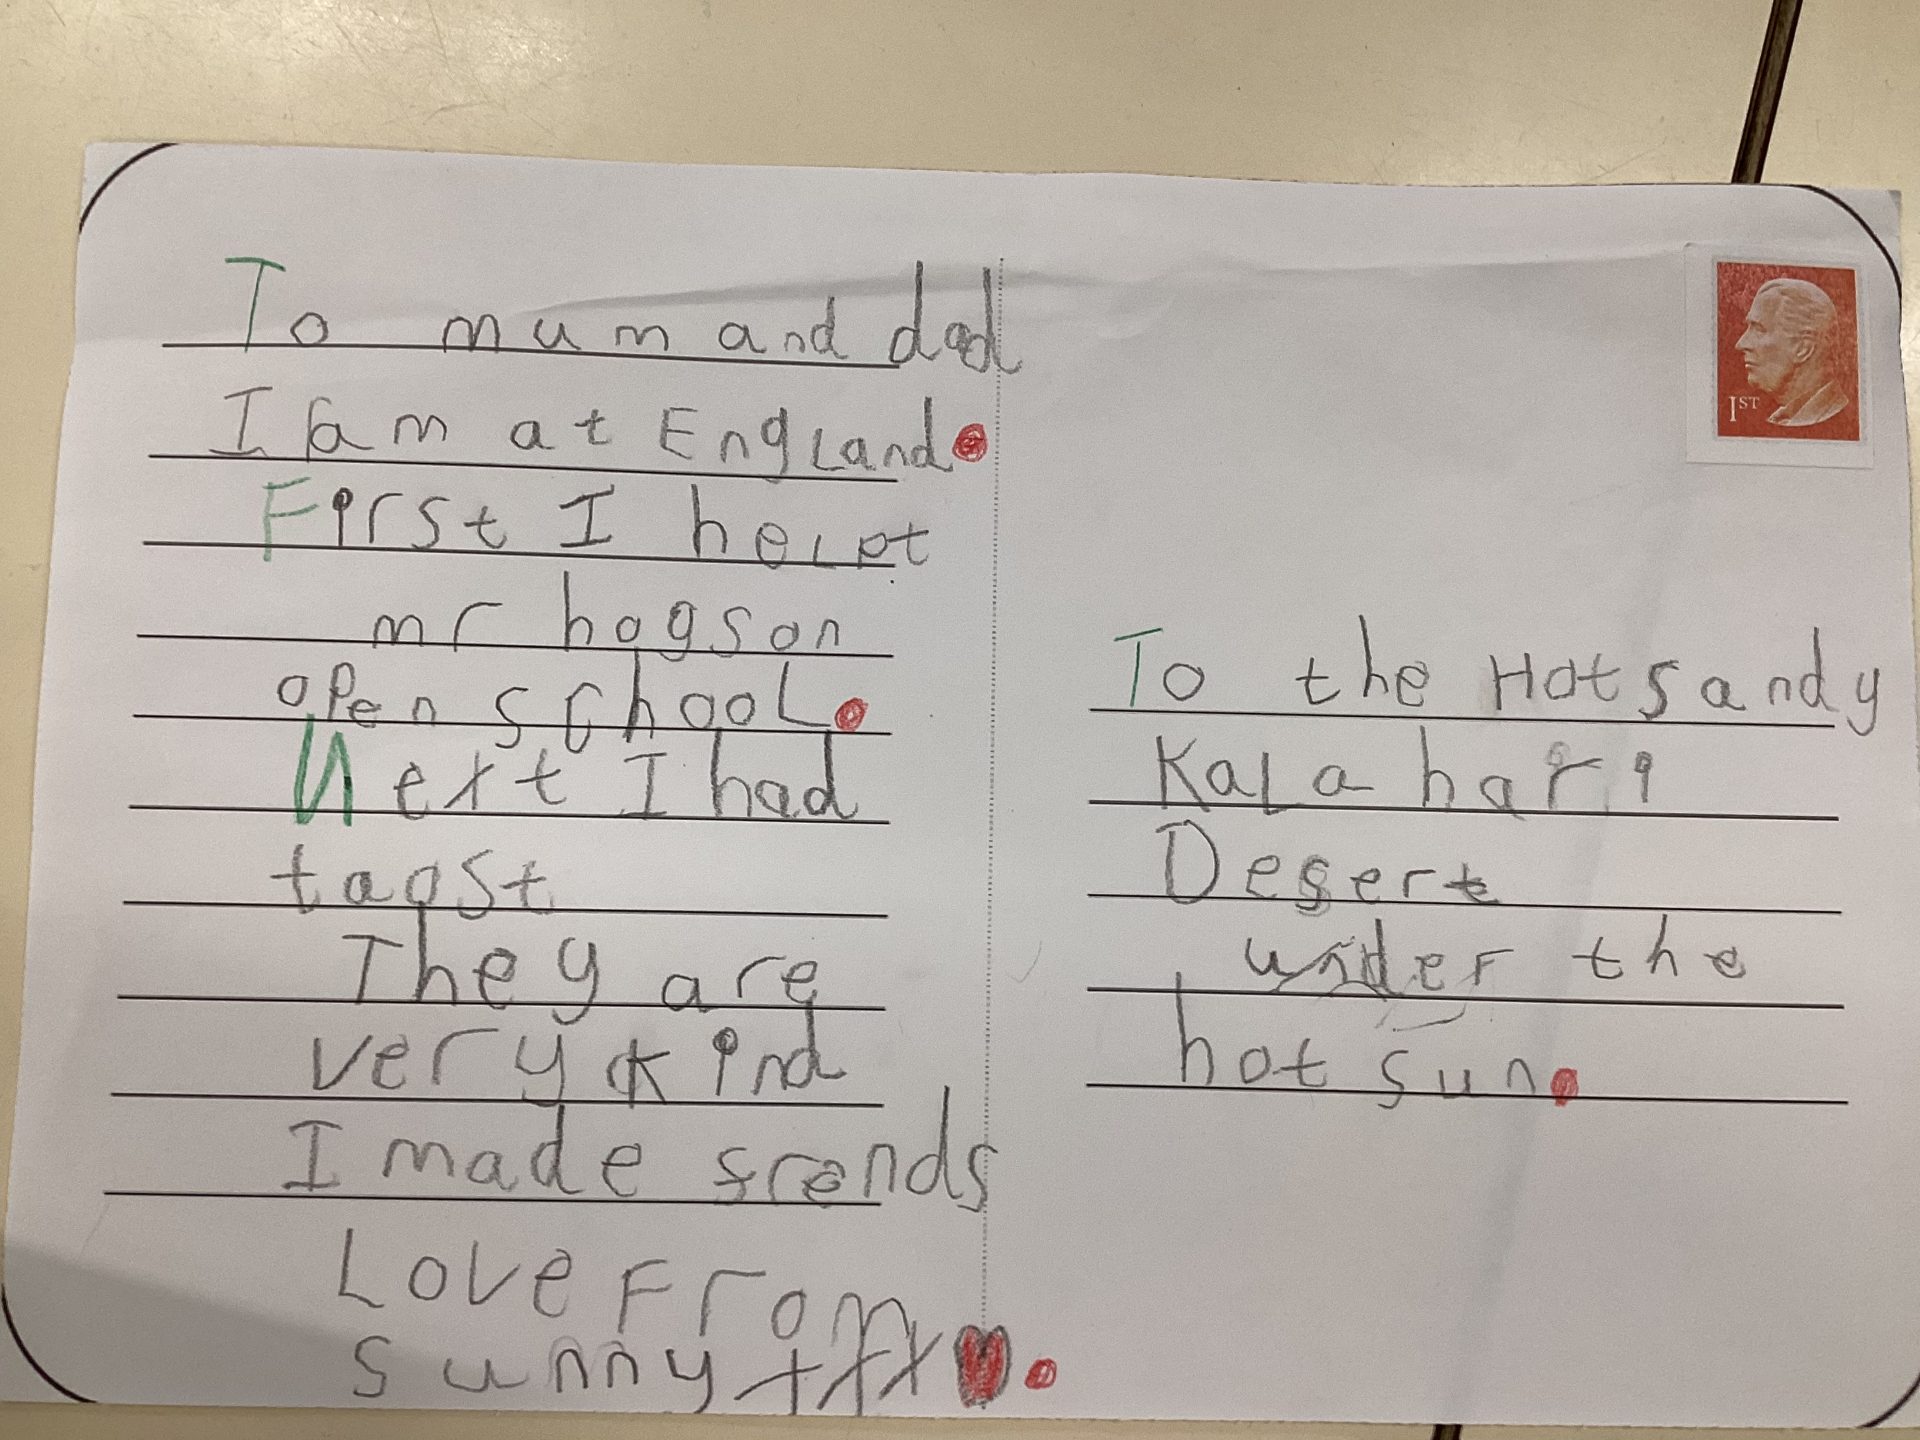 To mum and dad
I am at England.
First I helpt
mr hogson
open school.
Next I had
taost
They are
very kind
I made frends
Love From
sunny xxxx
1ST
To the Hot sandy
Kalahari
Desert
under the
hot sun.